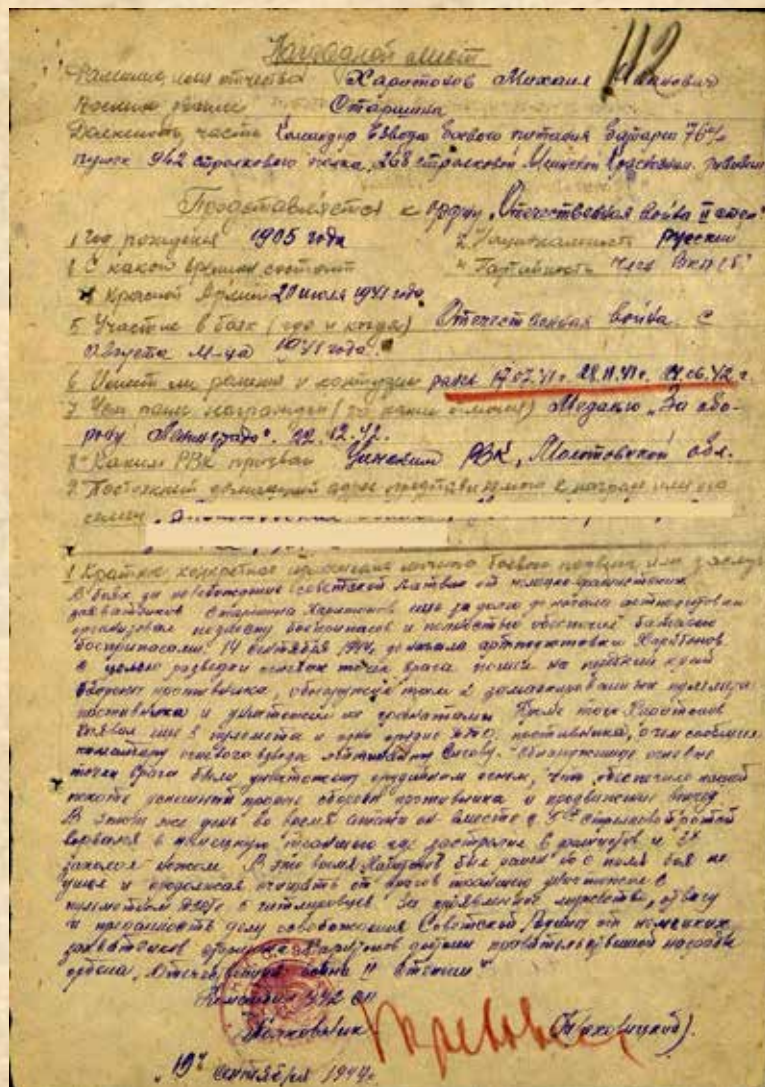 112
Наградной лист
Фамилия, имя отчество Харитонов Михаил Иванович
Военное звание Старшина
Должность, часть Командир взвода боевого питания батареи 76 м/м
пушек 942 стрелкового полка, 268 стрелковой Мгинской Краснознам. дивизии
Представляется к ордену „Отечественная война II степ."
1 Год рождения 1905 года 2. Национальность русский
3 С какого времени состоит 4 Партийность член ВКП(б)
в Красной Армии 20 июля 1941 года
5 Участие в боях (где и когда) Отечественная война. С
августа м-ца 1941 года.
6 Имеет ли ранения и контузии ранен 17.07.41г. 28.11.41г. 06.42 г.
7 Чем ранее награжден (за какие отличия) Медалью „За обо-
рону Ленинграда". 22.12.42.
8 Каким РВК призван РВК, Молотовской обл.
9. Постоянный домашний адрес представляемого к награде или его
семьи
1 Краткое конкретное изложение личного боевого подвига или заслуг
В боях за освобождение Советской Латвии от немецко-фашистских
захватчиков старшина Харитонов еще за долго до начала артподготовки
организовал подвозку боеприпасов и полностью обеспечил батарею
боеприпасами. 14 сентября 1944г. до начала артподготовки Харитонов
с целью разведки огневых точек врага пошел на передний край
обороны противника, обнаружил там 2 замаскированных пулемета
противника и уничтожил их гранатами. Кроме того Харитонов
выявил еще 3 пулемета и одно орудие противника, о чем сообщил
командиру огневого взвода лейтенанту Обнаруженные огневые
точки врага были уничтожены орудийным огнем, чем обеспечило нашей
пехоте успешный прорыв обороны противника и продвижение вперед.
В этот же день во время атаки он вместе с стрелковой ротой
ворвался в немецкую траншею где застрелил 6 фашистов и 2х
заколол ножом. В это время Харитонов был ранен но с поля боя не
ушел и продолжал очищать от врагов траншею уничтожив
5 гитлеровцев. За проявленное мужество, отвагу
и преданность делу освобождения Советской Родины от немецких
захватчиков старшина Харитонов достоин правительственной награды
ордена „Отечественная война II степени"
Командир 942 сп
Полковник
„19" сентября 1944г.